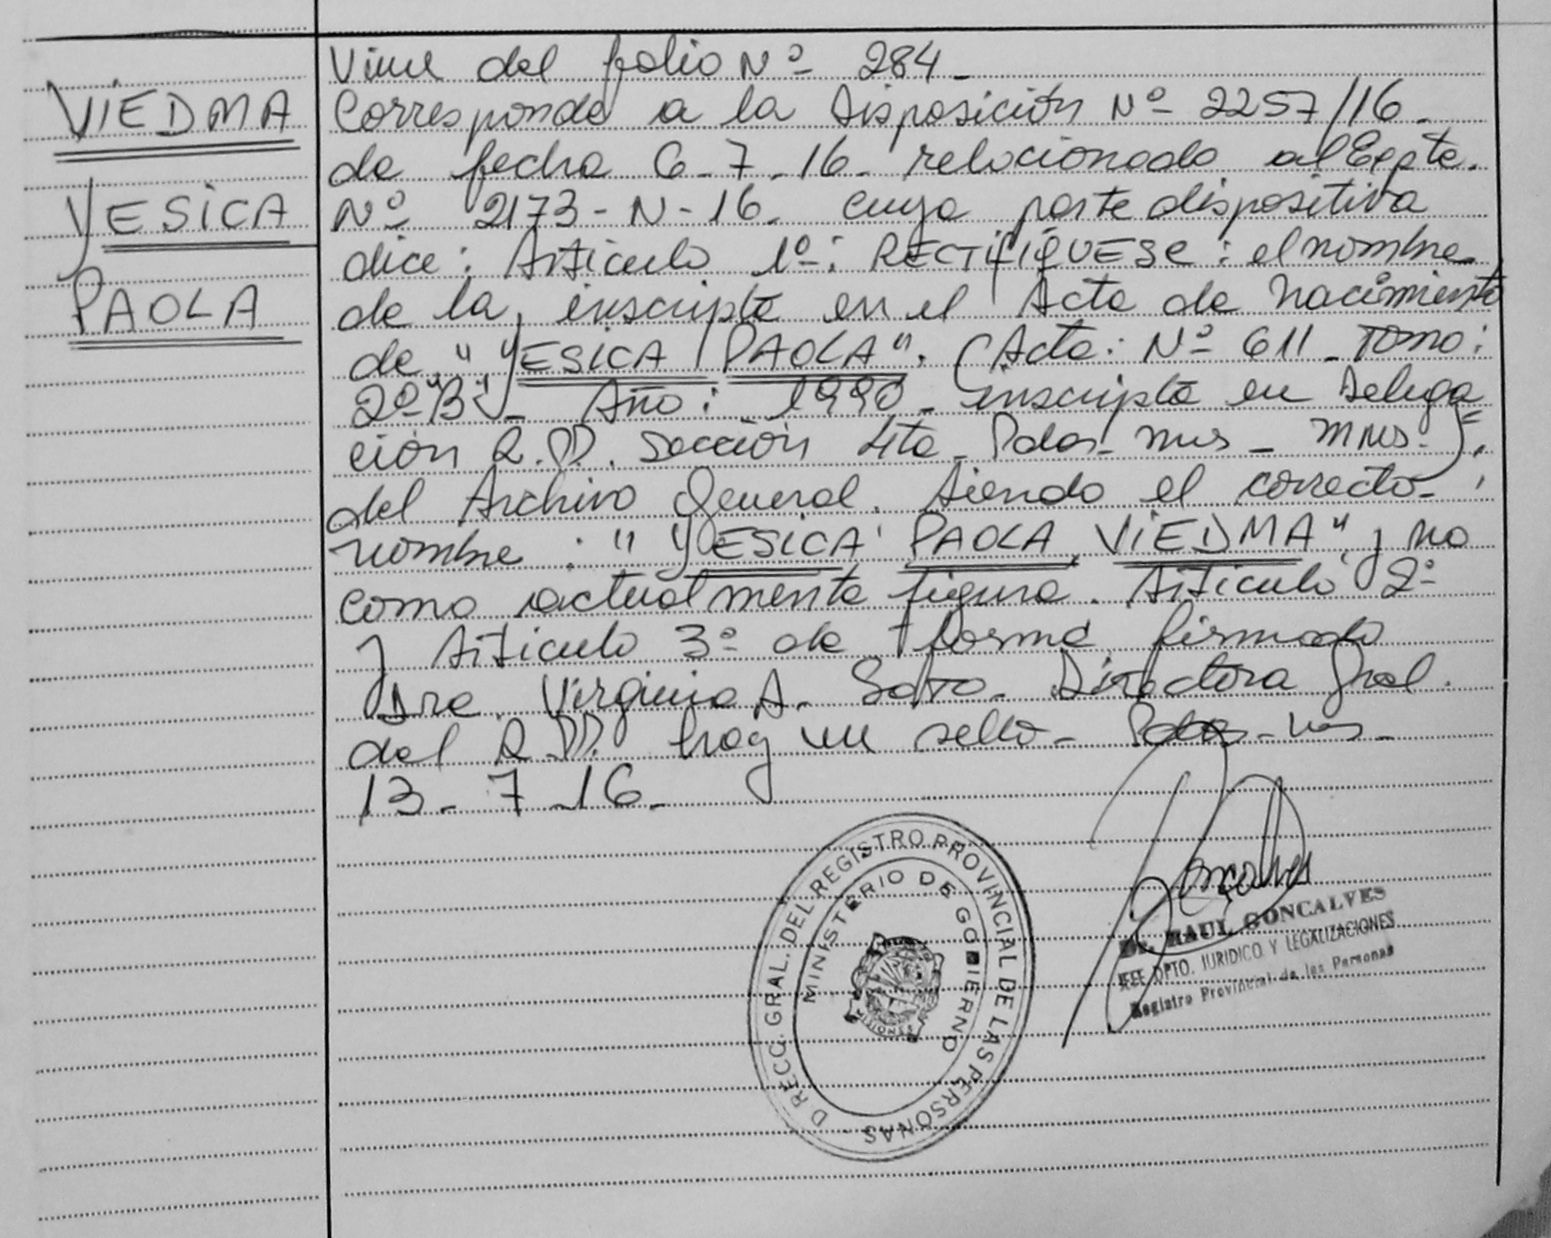 VIEDMA
YESICA
PAOLA
Viene del folio Nº 284_
Corresponde a la Disposición Nº 2257/16_
de fecha 6_7_16_ relacionado al Expte.
Nº 2173-N-16_ cuya parte dispositiva
dice: Artículo 1º: RECTIFIQUESE: el nombre
de la inscripta en el Acta de nacimiento
de "YESICA PAOLA". (Acta: Nº 611_ Tomo:
2º"B"_ Año: 1990_ inscripta en Delega
ción R.PP. Sección 4ta_ Pdas_ mns_ mns.)
del Archivo General. Siendo el correcto
nombre: "YESICA PAOLA VIEDMA" y no
como actualmente figura. Artículo 2º
y Artículo 3º de forma firmado
Dra. Virginia A. Soto_ Directora Gral.
del R.PP. hay un sello_ Pdas_ mns_
13_7_16_
DIRECC. GRAL. DEL REGISTRO PROVINCIAL DE LAS PERSONAS
MINISTERIO DE GOBIERNO
MISIONES
Dr. RAUL GONCALVES
JEFE DPTO. JURIDICO Y LEGALIZACIONES
Registro Provincial de las Personas